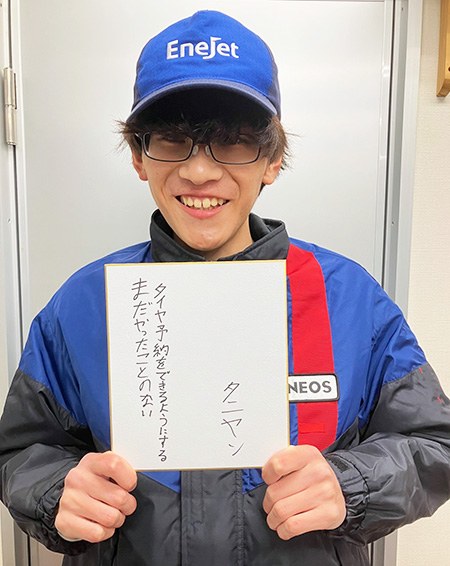 EneJet
NEOS
タニヤン
タイヤ予約をできるようにする
まだやったことのない